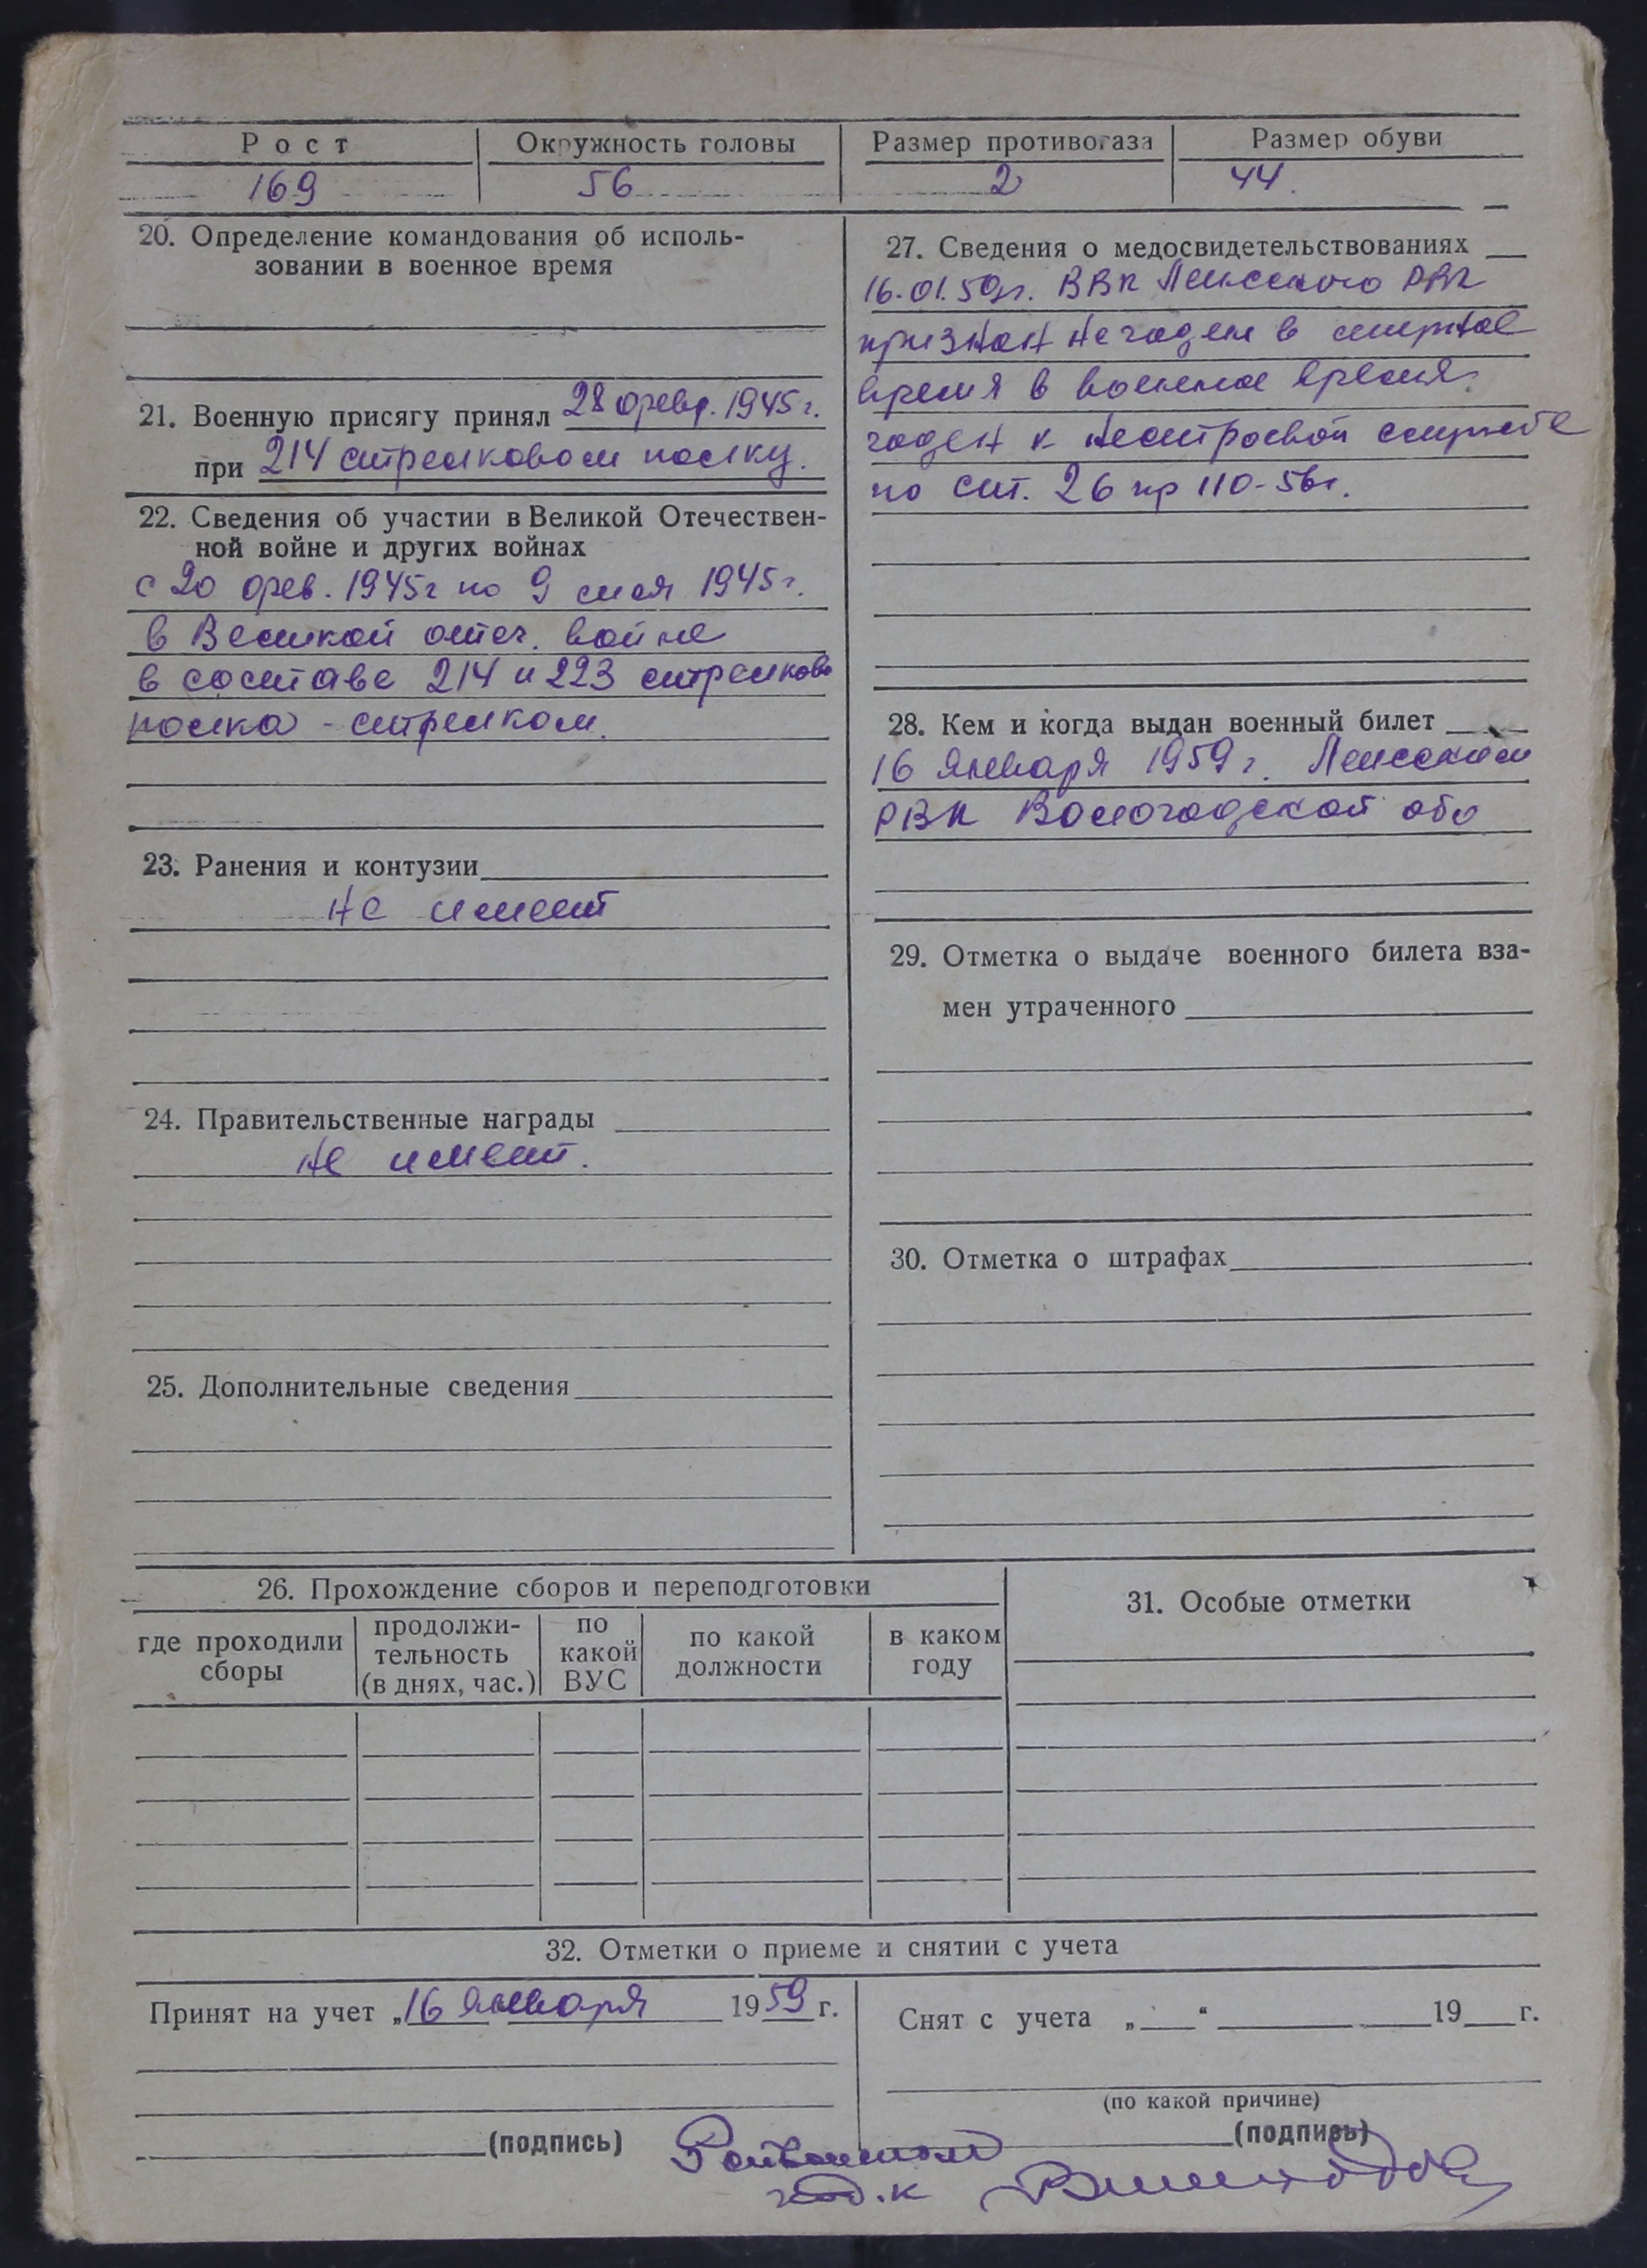 Рост
Окружность головы
Размер противогаза
Размер обуви
169
56
2
44.
20. Определение командования об исполь-
зовании в военное время
21. Военную присягу принял 28 февр. 1945 г.
при 214 стрелковом полку.
22. Сведения об участии в Великой Отечествен-
ной войне и других войнах
с 20 фев. 1945 г по 9 мая 1945 г.
в Великой отеч. войне
в составе 214 и 223 стрелково
полка - стрелком.
23. Ранения и контузии
не имеет
24. Правительственные награды
не имеет.
25. Дополнительные сведения
27. Сведения о медосвидетельствованиях
16.01.59г. ВВК Ленского РВК
признан негоден в мирное
время в военное время.
годен к нестроевой службе
по ст. 26 пр 110-56г.
28. Кем и когда выдан военный билет
16 января 1959 г. Ленским
РВК Вологодской обл
29. Отметка о выдаче военного билета вза-
мен утраченного
30. Отметка о штрафах
26. Прохождение сборов и переподготовки
где проходили
сборы
продолжи-
тельность
(в днях, час.)
по
какой
ВУС
по какой
должности
в каком
году
31. Особые отметки
32. Отметки о приеме и снятии с учета
Принят на учет „16 января 1959 г.
Снят с учета „ “ 19 г.
(по какой причине)
(подпись)
(подпись)
Райвоенком